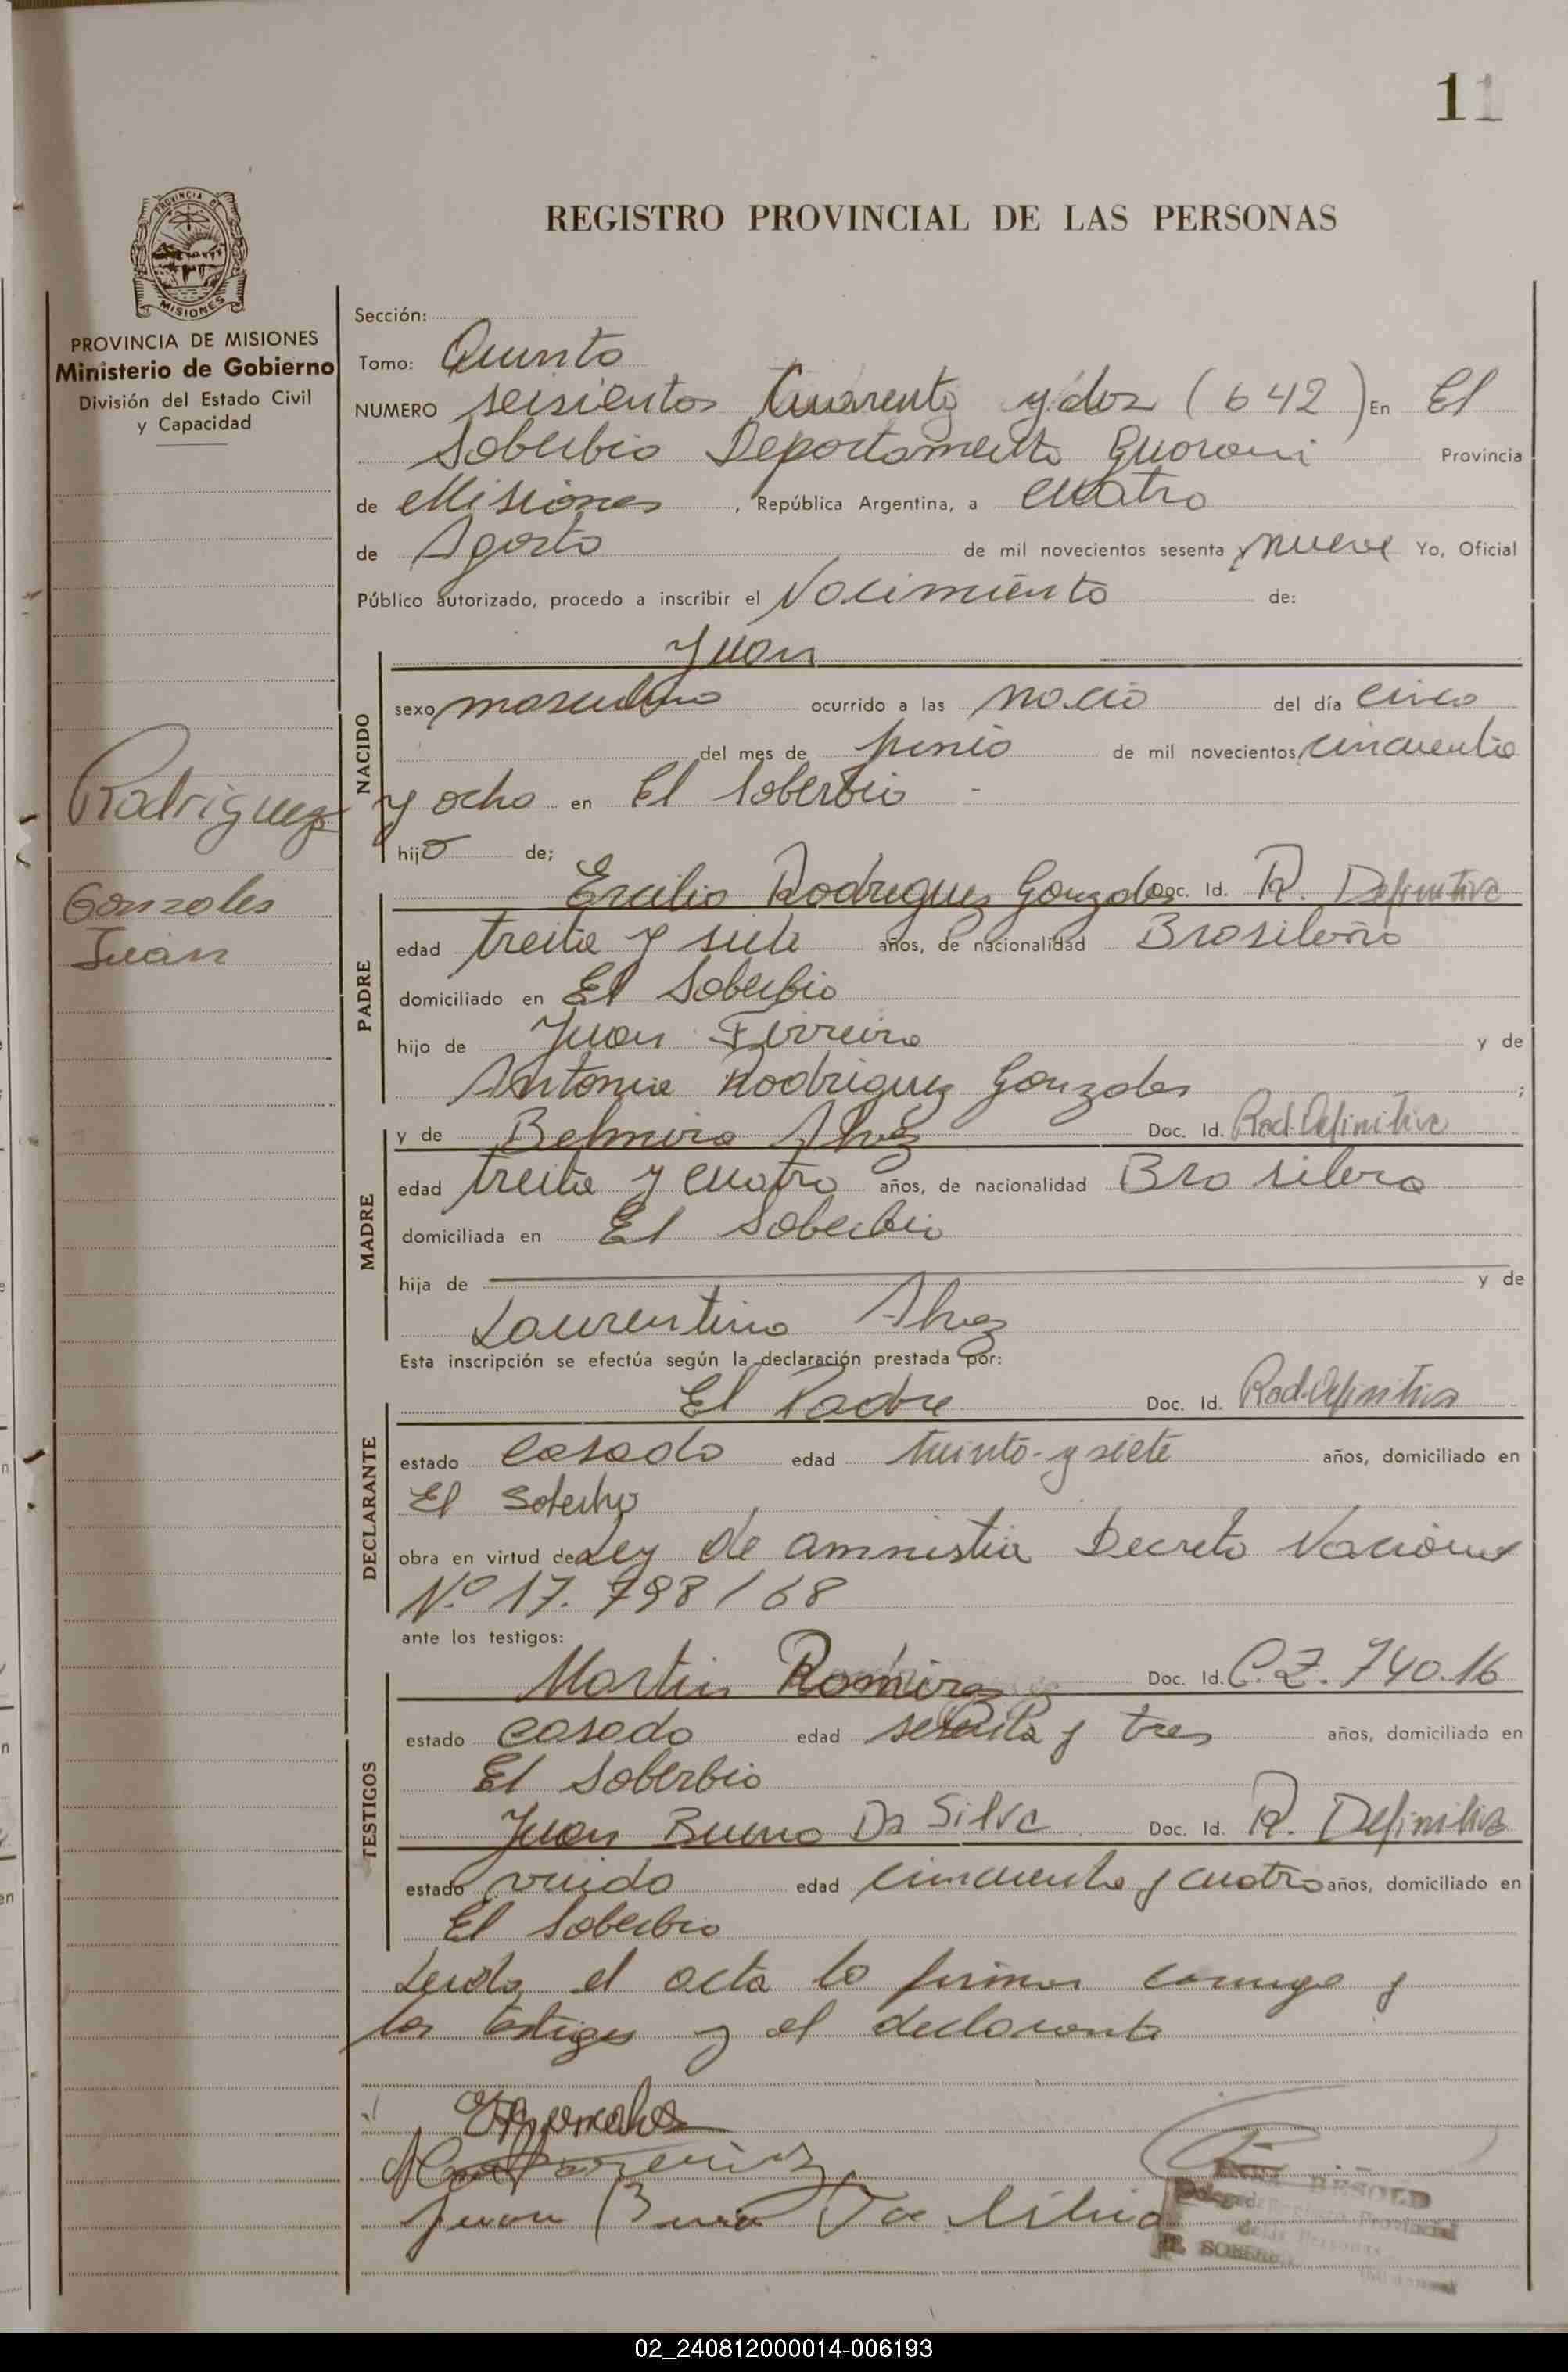 11
REGISTRO PROVINCIAL DE LAS PERSONAS
PROVINCIA DE
MISIONES
PROVINCIA DE MISIONES
Ministerio de Gobierno
División del Estado Civil
y Capacidad
Rodriguez
Gonzales
Juan
Sección:
Tomo: Quinto
NUMERO seisientos Cuarenta y dos (642) En El
Soberbio Departamento Guarani Provincia
de Misiones, República Argentina, a cuatro
de Agosto de mil novecientos sesenta y nueve Yo, Oficial
Público autorizado, procedo a inscribir el Nacimiento de:
Juan
NACIDO
sexo masculino ocurrido a las nacio del día cinco
del mes de junio de mil novecientos cincuenta
y ocho en El Soberbio -
hijo de;
PADRE
Ercilio Rodriguez Gonzales Doc. Id. R. Definitiva
edad treita y siete años, de nacionalidad Brasileño
domiciliado en El Soberbio
hijo de Juan Ferreira y de
Antonia Rodriguez Gonzales ;
MADRE
y de Belmira Alvez Doc. Id. Rad. Definitiva
edad treita y cuatro años, de nacionalidad Brasilera
domiciliada en El Soberbio
hija de y de
Laurentina Alvez
Esta inscripción se efectúa según la declaración prestada por:
DECLARANTE
El Padre Doc. Id. Rad. Definitiva
estado casado edad treinta y siete años, domiciliado en
El Soberbio
obra en virtud de Ley de amnistia Decreto Nacional
Nº 17.798/68
ante los testigos:
TESTIGOS
Martin Ramirez Doc. Id. C.I. 740.16
estado casado edad y tres años, domiciliado en
El Soberbio
Juan Bueno Da Silva Doc. Id. R. Definitiva
estado viudo edad cincuenta y cuatro años, domiciliado en
El Soberbio
Leida el acta la firman conmigo y
los testigos y el declarante
Juan Bueno Da Silva
BESOLD
Delegada Registro Provincial
de las Personas
EL SOBERBIO
02_240812000014-006193